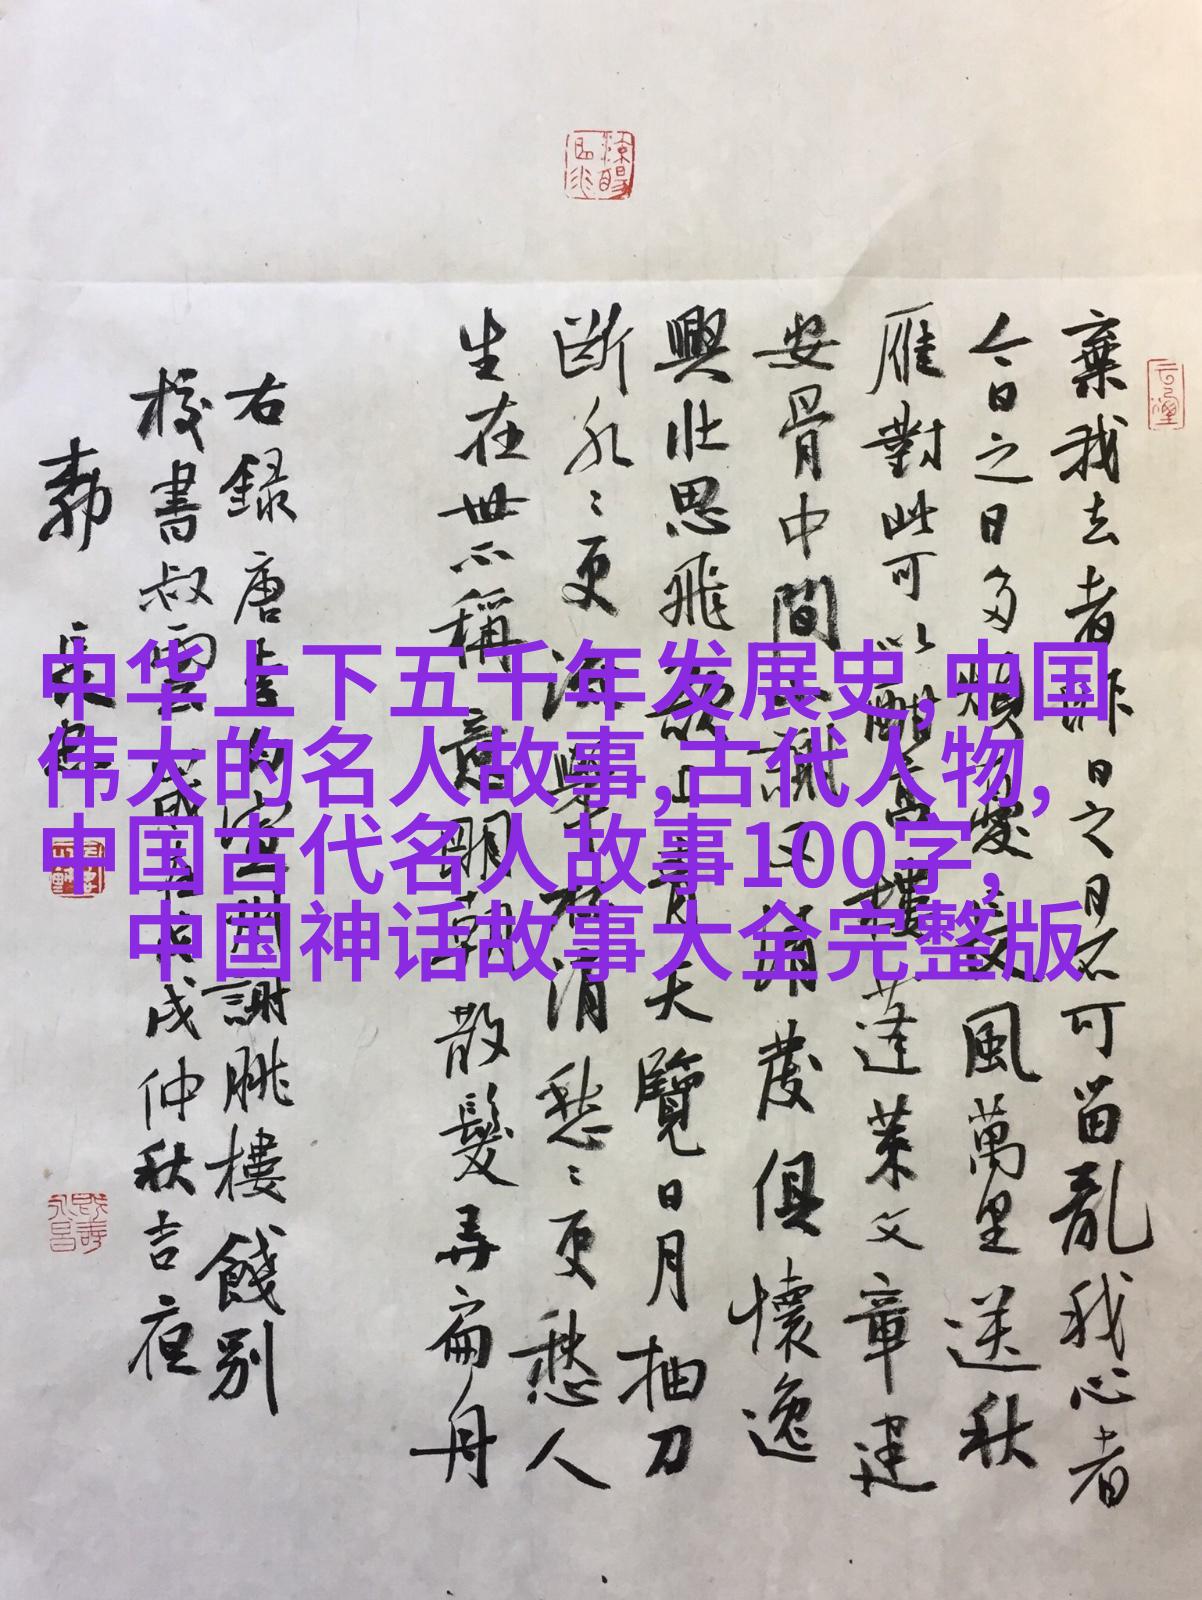 中华上下五千年发展史,中国
伟大的名人故事,古代人物,
中国古代名人故事100字,
中国神话故事大全完整版
棄我去者昨日之日不可留亂我心者
今日之日多煩憂長風萬里送秋
雁對此可以酣高樓蓬萊文章建
安骨中間小謝又清發俱懷逸
興壯思飛欲上青天覽日月抽刀
斷水〻更流舉杯消愁〻更愁人
生在世不稱意明朝散髮弄扁舟
右錄唐李白宣州謝朓樓餞別
校書叔雲歲在戌仲秋吉夜